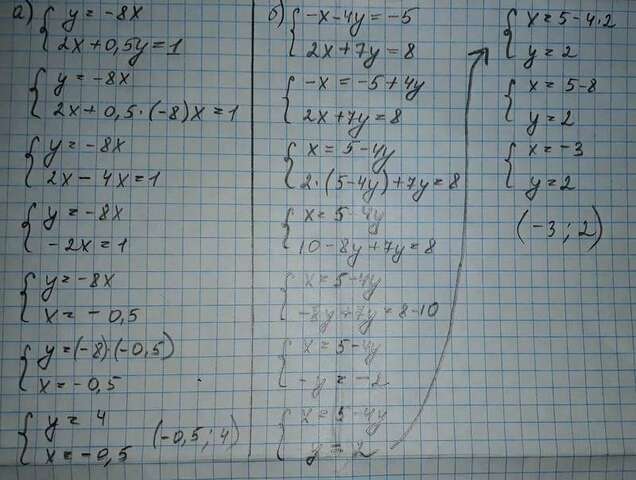 а) y = -8x
2x + 0,5y = 1
y = -8x
2x + 0,5·(-8)x = 1
y = -8x
2x - 4x = 1
y = -8x
-2x = 1
y = -8x
x = -0,5
y = (-8)·(-0,5)
x = -0,5
y = 4
x = -0,5 (-0,5; 4)
б) -x - 4y = -5
2x + 7y = 8
-x = -5 + 4y
2x + 7y = 8
x = 5 - 4y
2·(5 - 4y) + 7y = 8
x = 5 - 4y
10 - 8y + 7y = 8
x = 5 - 4y
-8y + 7y = 8 - 10
x = 5 - 4y
-y = -2
x = 5 - 4y
y = 2
x = 5 - 4·2
y = 2
x = 5 - 8
y = 2
x = -3
y = 2
(-3; 2)